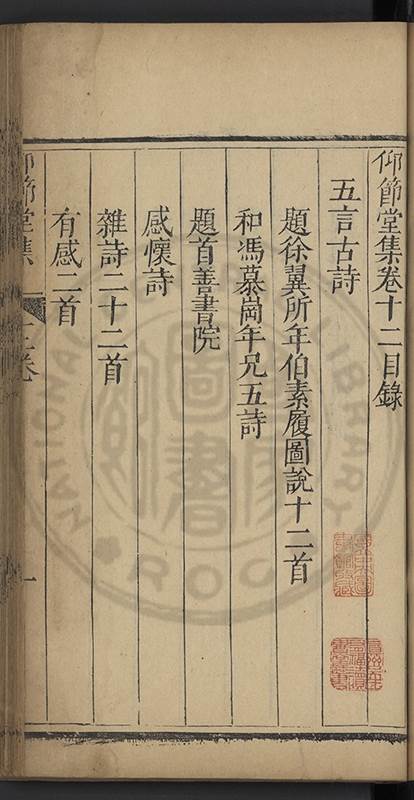 仰節堂集卷十二目錄
五言古詩
題徐翼所年伯素履圖說十二首
和馮慕岡年兄五詩
題首善書院
感懷詩
雜詩二十二首
有感二首
仰節堂集
十二卷
一